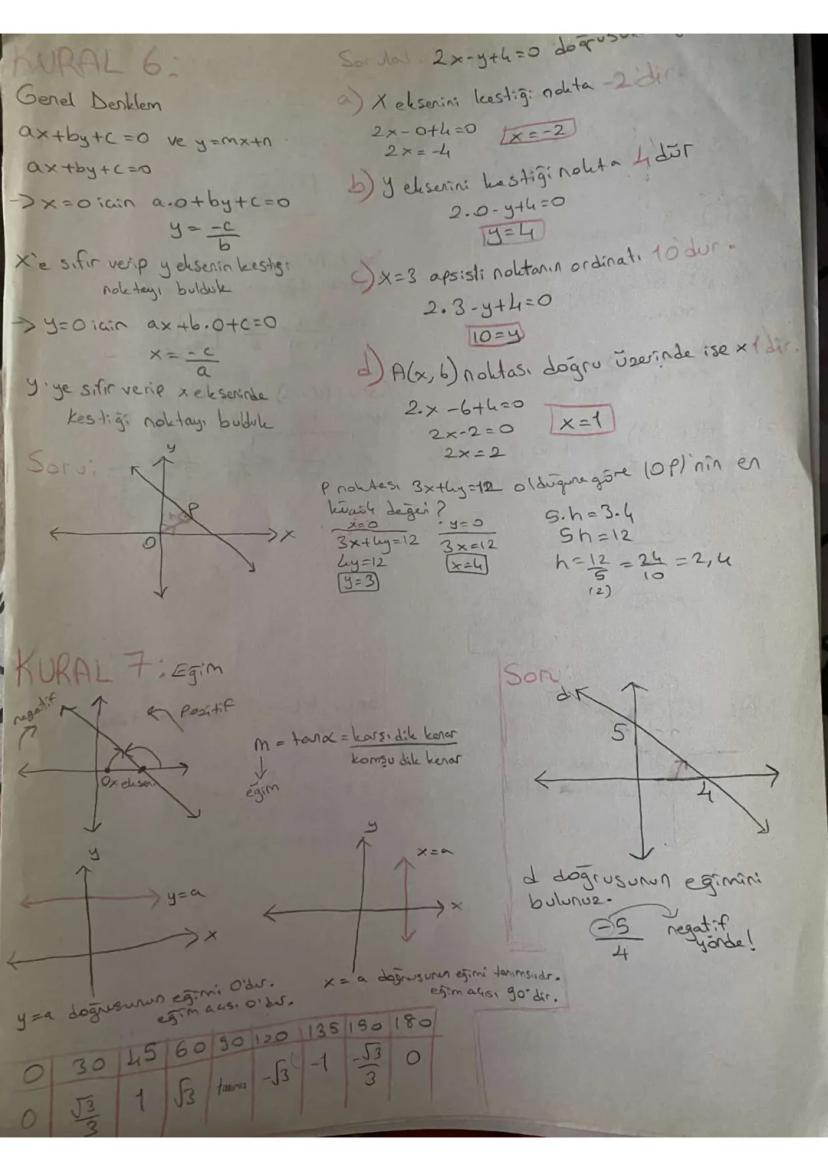 KURAL 6:
Genel Denklem
ax+by+c=0 ve y=mx+n
ax+by+c=0
-> x=0 için a.0+by+c=0
y = -c/b
x'e sıfır verip y eksenin kestiği
noktayı bulduk
-> y=0 için ax+b.0+c=0
x = -c/a
y'ye sıfır verip x ekseninde
kestiği noktayı bulduk
2x-y+4=0
a) X eksenini kestiği nokta -2'dir.
2x-0+4=0
x=-2
2x=-4
b) y eksenini kestiği nokta 4 dür
2.0-y+4=0
y=4
c) x=3 apsisli noktanın ordinatı 10'dur.
2.3-y+4=0
10=y
d) A(x,6) noktası doğru üzerinde ise x 1'dir.
2.x-6+4=0
2x-2=0
2x=2
x=1
Soru:
y
P
O
x
P noktası 3x+4y=12 olduğuna göre |OP|'nin en
küçük değeri?
x=0
3x+4y=12
4y=12
y=3
y=0
3x=12
x=4
5.h=3.4
5h=12
h=12/5=24/10=2,4
(2)
KURAL 7: Eğim
negatif
Pozitif
Ox eksen
m = tanα = karşı dik kenar/komşu dik kenar
eğim
y
y=a
x
y
x=a
x
y=a doğrusunun eğimi 0'dır.
eğim açısı 0'dır.
x=a doğrusunun eğimi tanımsızdır.
eğim açısı 90°dir.
Soru:
d
5
4
d doğrusunun eğimini
bulunuz.
-5/4 negatif
yönde!
0 30 45 60 90 120 135 150 180
0 √3/3 1 √3 -√3 -1 -√3/3 0